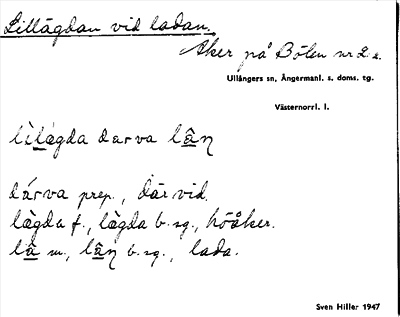 Lillägdan vid ladan.
Åker på Bölen nr 2:2.
Ullångers sn, Ångermanl. s. doms. tg.
Västernorrl. l.
lìlägda darva lâṇ
dárva prep., där vid.
lägda f., lägda b. sg., höåker.
lâ m., lâṇ b. sg., lada.
Sven Hiller 1947